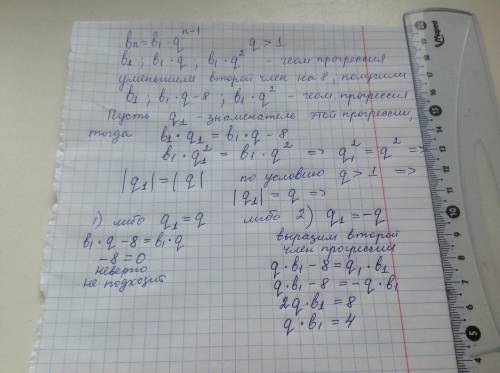 bn = b1 · q^(n-1)   q > 1
b1 ; b1 · q , b1 · q² - геом прогрессия
уменьшим второй член на 8, получим
b1 ; b1 · q - 8 ; b1 · q² - геом прогрессия
Пусть q1 - знаменатель этой прогрессии,
тогда b1 · q1 = b1 · q - 8
b1 · q1² = b1 · q² => q1² = q² =>
|q1| = |q|   по условию q > 1 =>
|q1| = q =>
1) либо q1 = q
b1 · q - 8 = b1 · q
-8 = 0
неверно
не подходит
либо 2) q1 = -q
выразим второй
член прогрессии
q · b1 - 8 = q1 · b1
q · b1 - 8 = -q · b1
2q · b1 = 8
q · b1 = 4
0 1 2 3 4 5 6 7 8 9